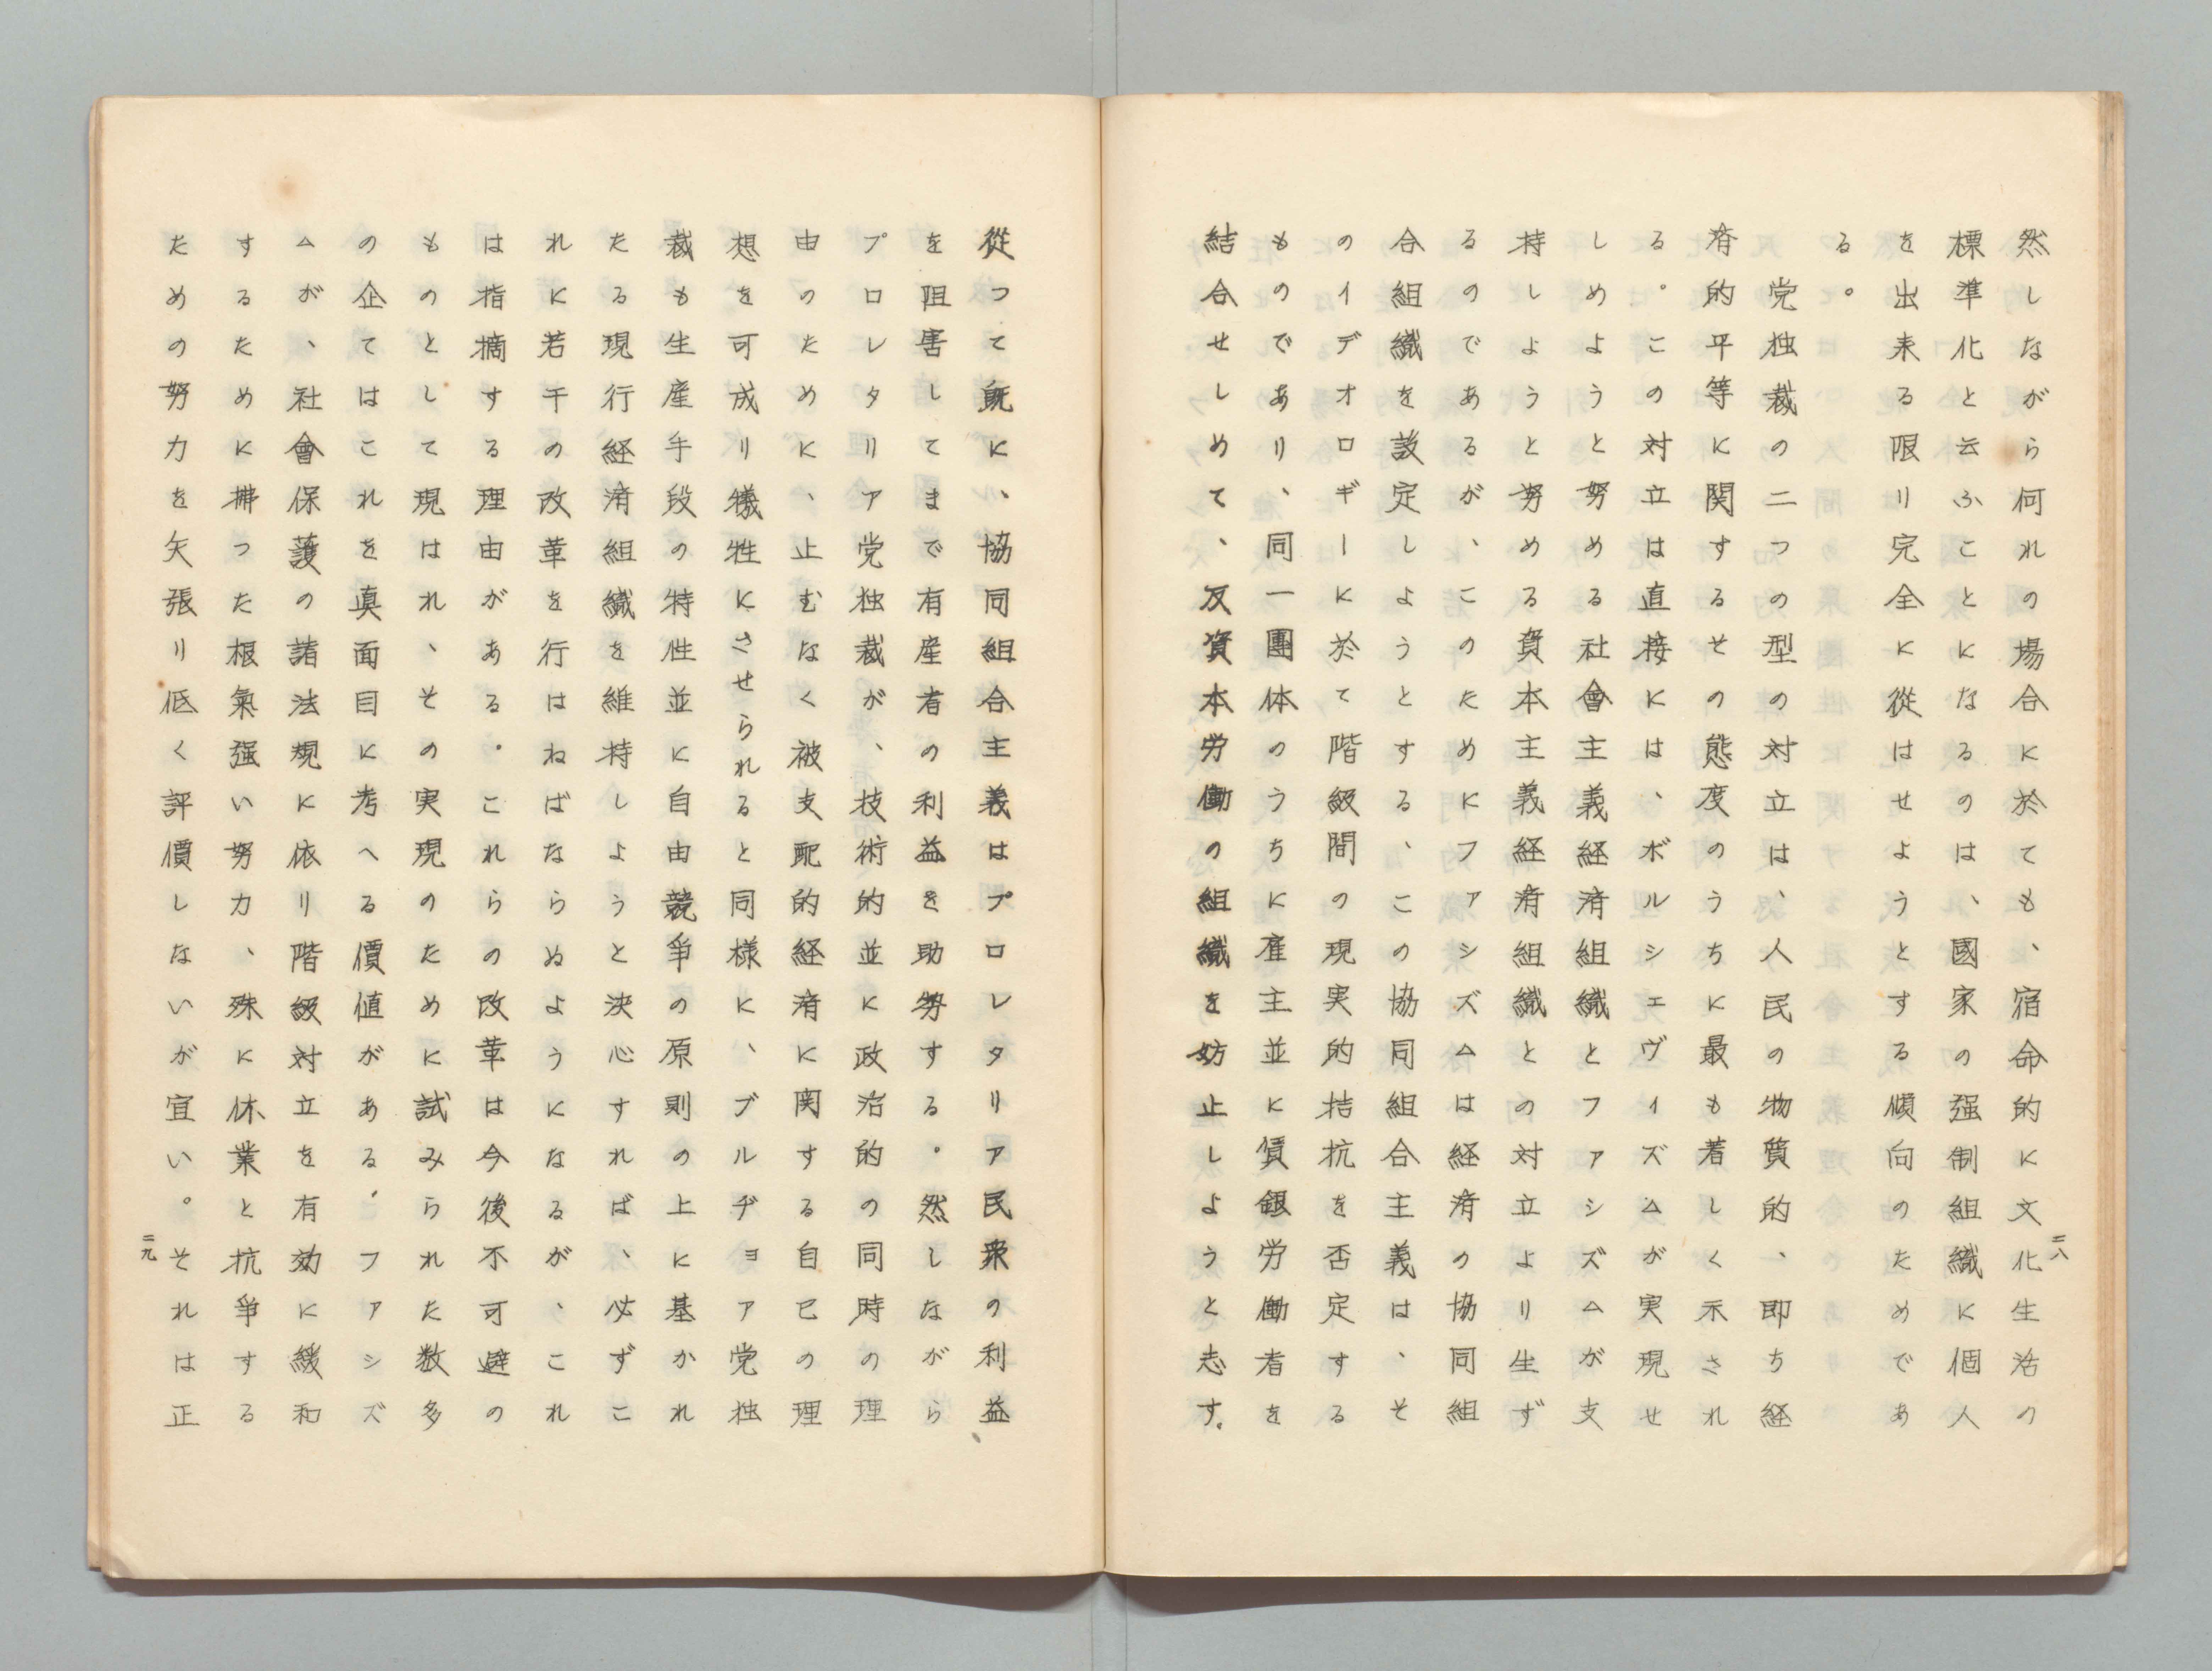 然しながら何れの場合に於ても、宿命的に文化生活の
標準化と云ふことになるのは、國家の强制組織に個人
を出来る限り完全に從はせようとする傾向のためであ
る。
党独裁の二つの型の対立は、人民の物質的、即ち経
済的平等に関するその態度のうちに最も著しく示され
る。この対立は直接には、ボルシェヴィズムが実現せ
しめようと努める社會主義経済組織とファシズムが支
持しようと努める資本主義経済組織との対立より生ず
るのであるが、このためにファシズムは経済の協同組
合組織を設定しようとする、この協同組合主義は、そ
のイデオロギーに於て階級間の現実的拮抗を否定する
ものであり、同一團体のうちに雇主並に賃銀労働者を
結合せしめて、反資本労働の組織を妨止しようと志す。
二八
從つて既に、協同組合主義はプロレタリア民衆の利益
を阻害してまで有産者の利益を助勢する。然しながら
プロレタリア党独裁が、技術的並に政治的の同時の理
由のために、止むなく被支配的経済に関する自己の理
想を可成り犠牲にさせられると同様に、ブルヂョア党独
裁も生産手段の特性並に自由競争の原則の上に基かれ
たる現行経済組織を維持しようと決心すれば、必ずこ
れに若干の改革を行はねばならぬようになるが、これ
は指摘する理由がある。これらの改革は今後不可避の
ものとして現はれ、その実現のために試みられた数多
の企てはこれを真面目に考へる價値がある。ファシズ
ムが、社會保護の諸法規に依り階級対立を有効に緩和
するために拂つた根氣强い努力、殊に休業と抗争する
ための努力を矢張り低く評價しないが宜い。それは正
二九